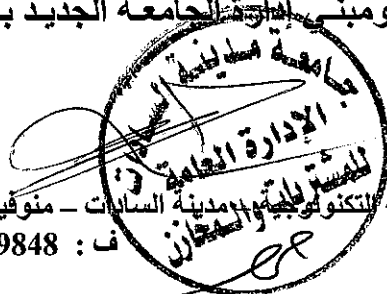 ومبنى إدارة الجامعة الجديد ب
جامعة مدينة السادات
الإدارة العامة
للمشتريات والمخازن
التكنولوجية بمدينة السادات – منوفي
ف : 9848